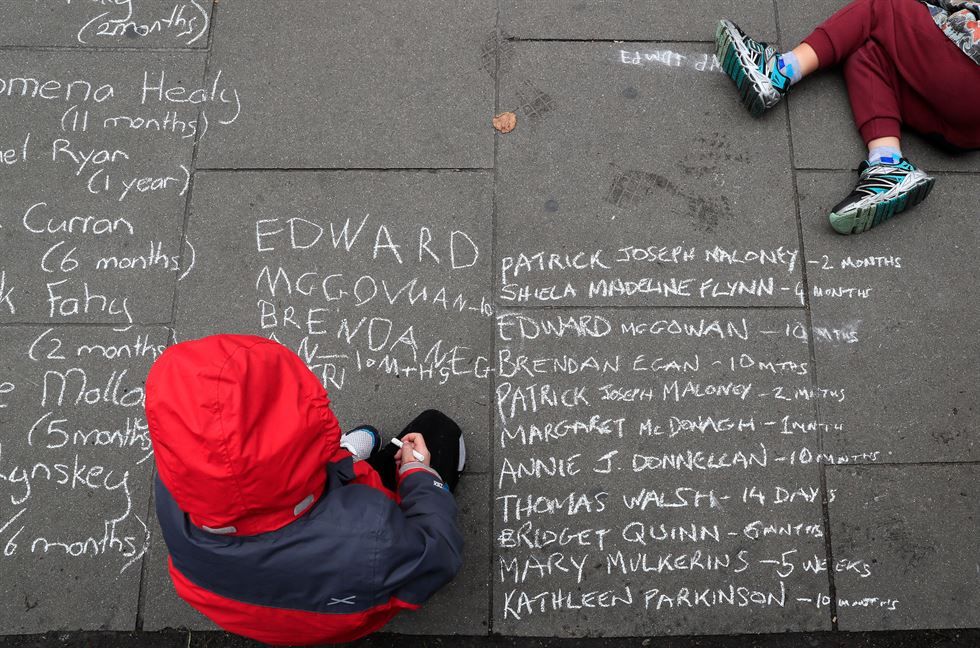 (2 months)
omena Healy
(11 months)
Ryan
(1 year)
Curran
(6 months)
Fahy
(2 months)
Molloy
(5 months)
Lynskey
6 months)
EDWARD
MCGOWAN-10
BRENDA
PATRICK JOSEPH MALONEY - 2 MONTHS
SHIELA MADELINE FLYNN - 4 MONTHS
EDWARD MCGOWAN - 10 MTHS
BRENDAN EGAN - 10 MTHS
PATRICK JOSEPH MALONEY - 2 MTHS
MARGARET MCDONAGH - 1 MNTH
ANNIE J. DONNELLAN - 10 MTHS
THOMAS WALSH - 14 DAYS
BRIDGET QUINN - 6 MNTHS
MARY MULKERINS - 5 WEEKS
KATHLEEN PARKINSON - 10 MNTHS